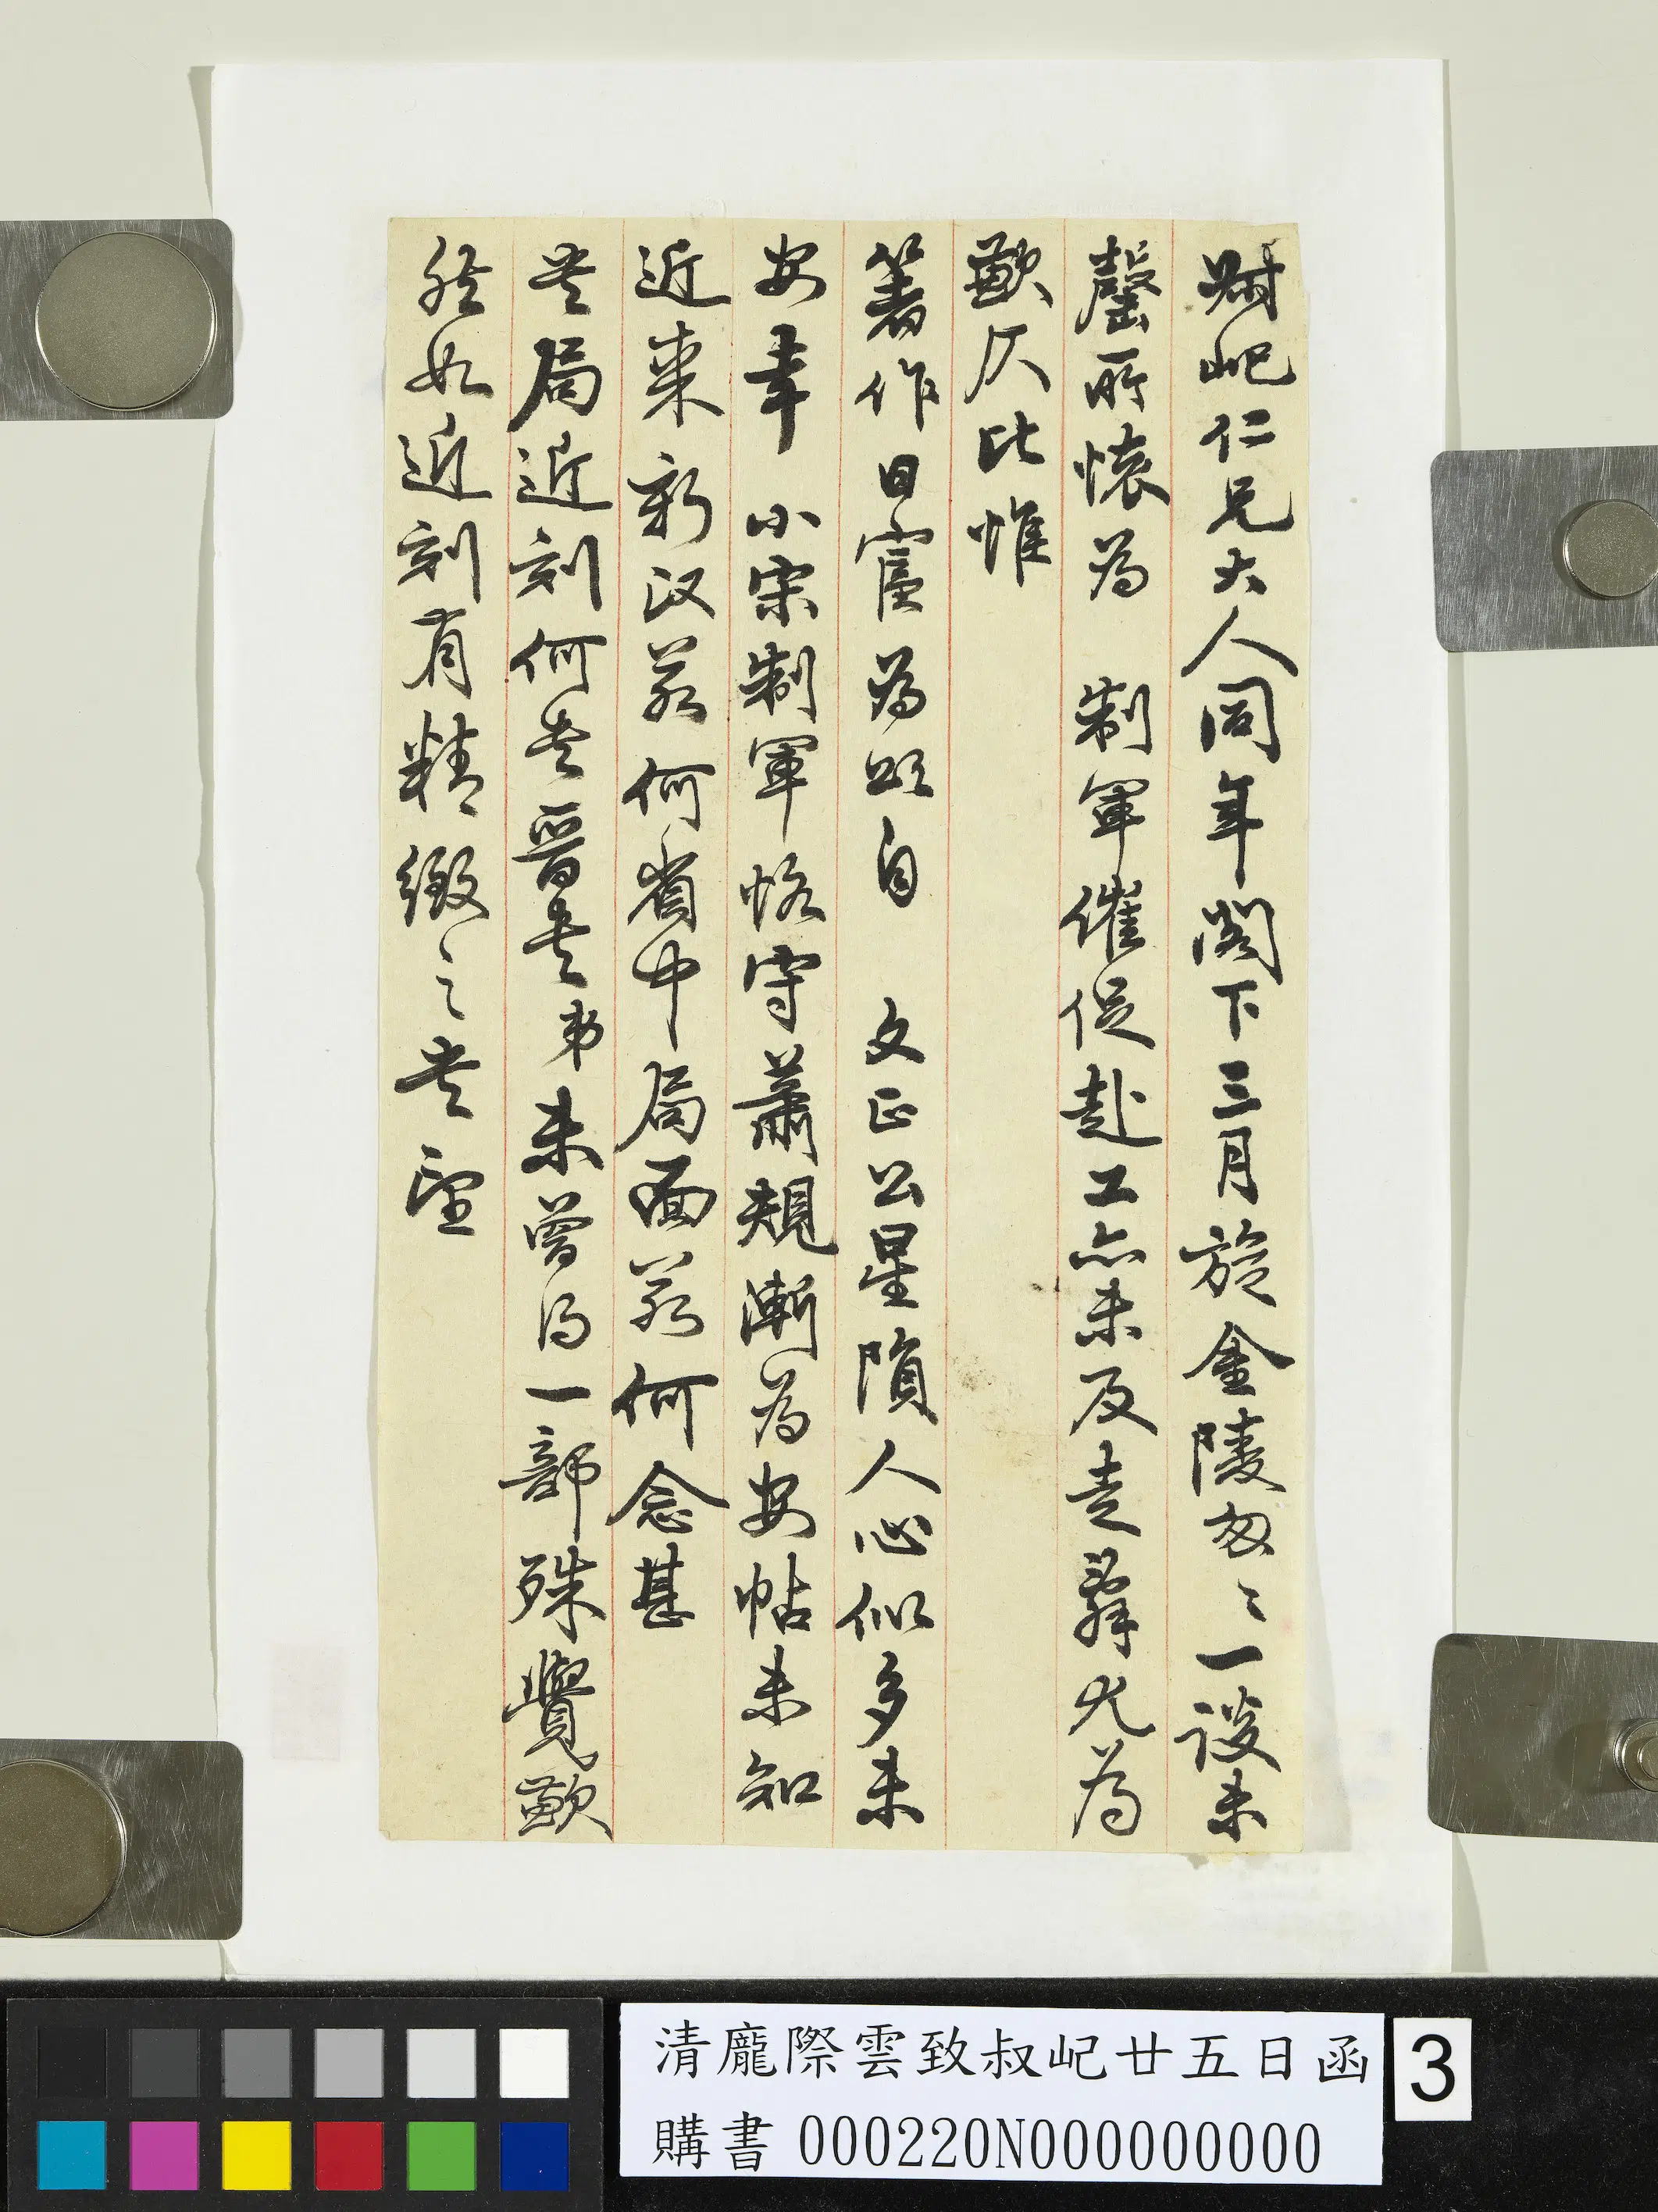 尗屺仁兄大人同年閣下三月旋金陵匆〻一談未
罄所懷為 制軍催促赴工亦未及走辭尤為
歉仄比惟
箸作日富為頌自 文正公星隕人心似多未
安幸 小宋制軍恪守蕭規漸為安帖未知
近來新政若何省中局面若何念甚
書局近刻何書晉書弟未曾得一部殊覺歉
然如近刻有精緻之書望
清龐際雲致叔屺廿五日函
購書 000220N000000000
3